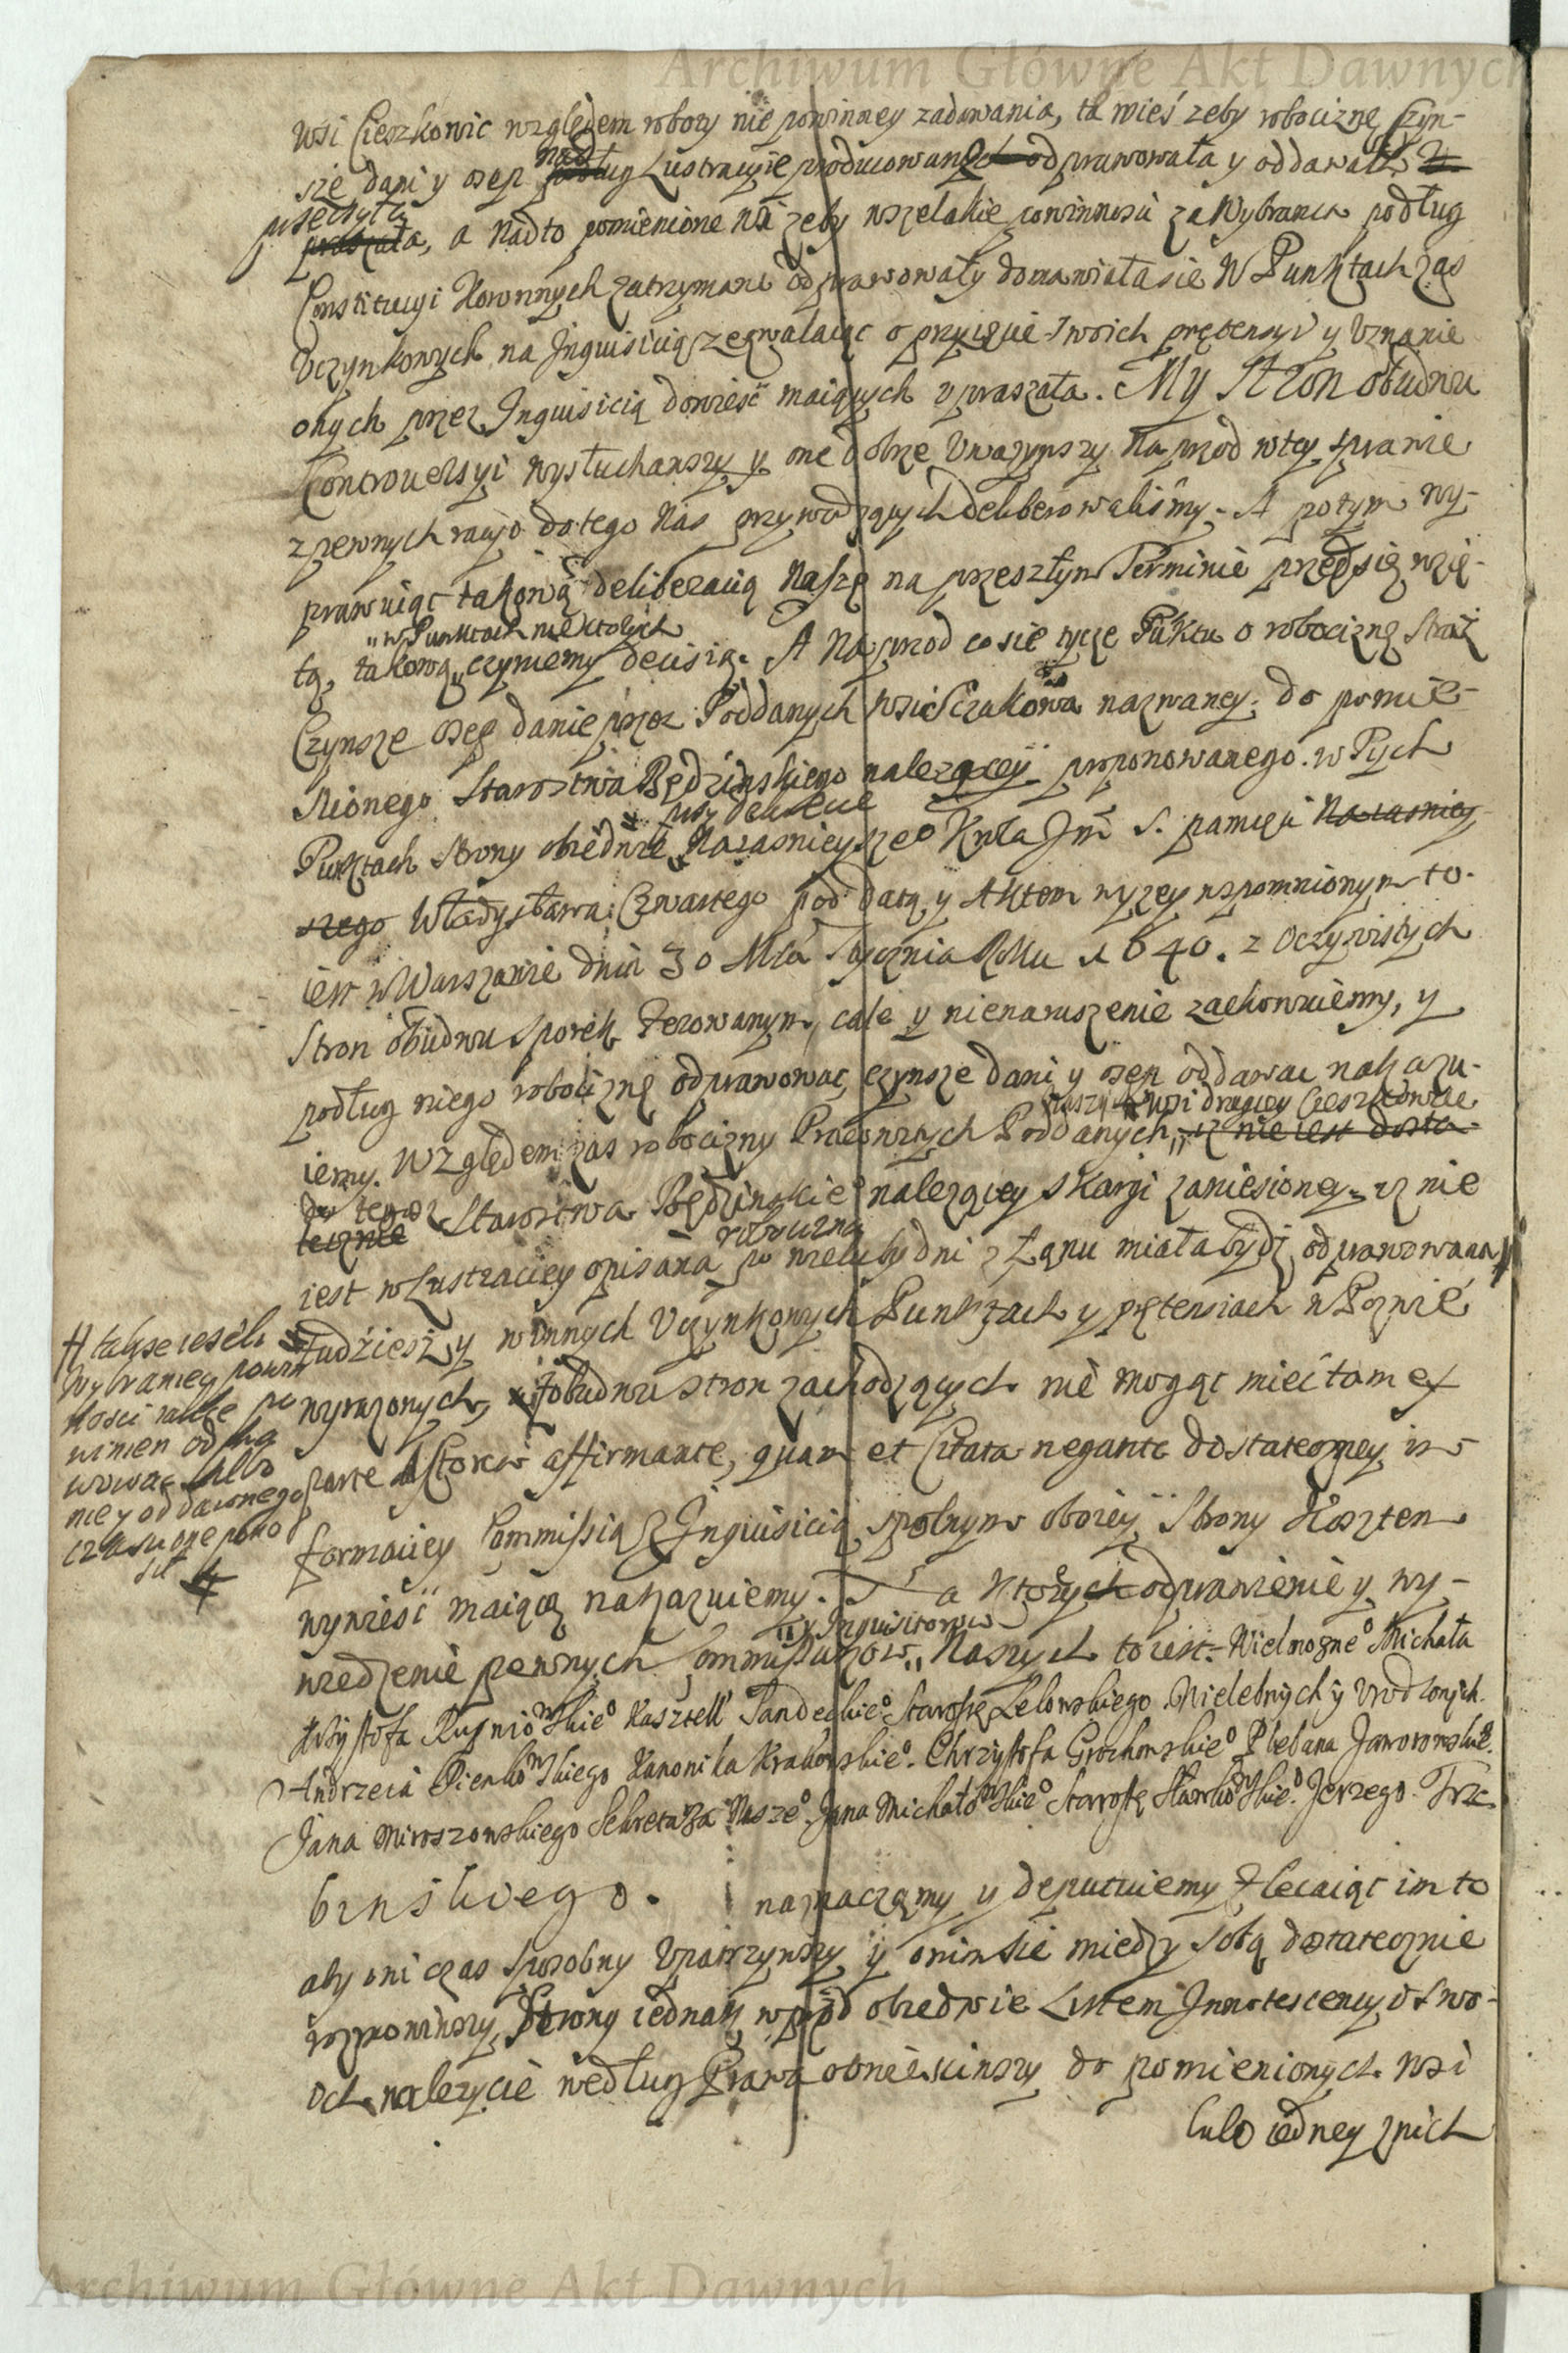 Archiwum Główne Akt Dawnych
wsi Cieszkowic względem roboty nie powinney zadawania, ta wieś zeby robociznę Czyn-
sze dani y osep nad podług Lustracyie producowaney odprawowała y oddawała
przeczyła, a nadto pomienione wsi zeby wszelakie powinnosci za Wybranca podług
Constitucyi Koronnych zatrzymane odprawowały domawiała się W Punktach zas
Uczynkowych na Inquisicią zezwalaiąc o przyięcie swoich prętensyi y Uznanie
onych przez Inquisicią dowieść maiących upraszała. My Stron obudwu
Controuersyi wysłuchawszy y one dobrze Uwazywszy Na przod w tey sprawie
z pewnych racyi do tego Nas przywodzących deliberowalismy. A potym wy-
prawuiąc takową deliberacią Naszę na przeszłym Terminie przedsię wzię-
„w Punktach niektorych
tą, takową „ czyniemy decisią. A Naprzod co sie tycze Puktu o robociznę Straz
Czynsze osep danie przez Poddanych wsi Sczakowa nazwaney, do pomie-
nionego Starostwa Będzinskiego nalezącey proponowanego. w Tych
przy dekrecie
Punktach Strony obiedwie Naiasnieyszeo Krola Jm S. pamięci Naiasniey-
szego Władysława Czwartego pod datą y Aktem wyzey wspomnionym to
iest w Warszawie dnia 30 Mca Stycznia Roku 1640. z Oczywistych
Stron obudwu Sporek Ferowanym, całe y nienaruszenie zachowuiemy, y
podług niego robociznę odprawowac, czynsze dani y osep oddawac nakazu-
Naszych wsi drugiey Cieszkowice
iemy. Względem zas robocizny Pracownych Poddanych „ iz nie iest dosta-
do tegoz
tecznie Starostwa Będzinskieo nalezącey skargi zaniesioney iz nie
robocizna
iest w Lustraciey opisana po wieluby dni z Łanu miała bydz odprawowana
tudziesz y w innych Uczynkowych Punktach y prętensiach w Pozwie
wyrazonych, z obudwu stron zachodzących nie mogąc mieć tam ex
parte Actorea affirmante, quam et Citata negante dostateczney in-
formaciey Commissią z Inquisicią spolnym oboiey Strony Kosztem
wywieść maiącą nakazuiemy. Na ktorych odprawienie y wy-
„y Inquisitorow
wiedzenie pewnych Commissarzow „ Naszych to iest Wielmozneo Michała
Krysztofa Rupniowskieo Kasztell Sandeckieo Starostę Lelowskiego Wielebnych y Urodzonych
Andrzeia Pienkowskiego Kanonika Krakowskieo. Chrzysztofa Grochowskieo Plebana Jaworowskieo.
Jana Miroszowskiego Sekretarza Naszeo. Jana Michałowskieo Starostę Sławkowskieo. Jerzego Trze
binskiego. naznaczamy y deputuiemy Zlecaiąc im to
aby oni czas sposobny Upatrzywszy y onim sie miedzy sobą dostatecznie
rozmowiwszy, Strony iednak wprzod obiedwie Listem Innotescency od swo-
ich nalezycie według Prawa obwieściwszy do pomienionych wsi
lubo iedney z nich
# takze iesli
Wybraniey powin
nosci iakie po
winien odpra
wowac albo
nie y od dawnego
czasu one pono
sił #
Archiwum Główne Akt Dawnych